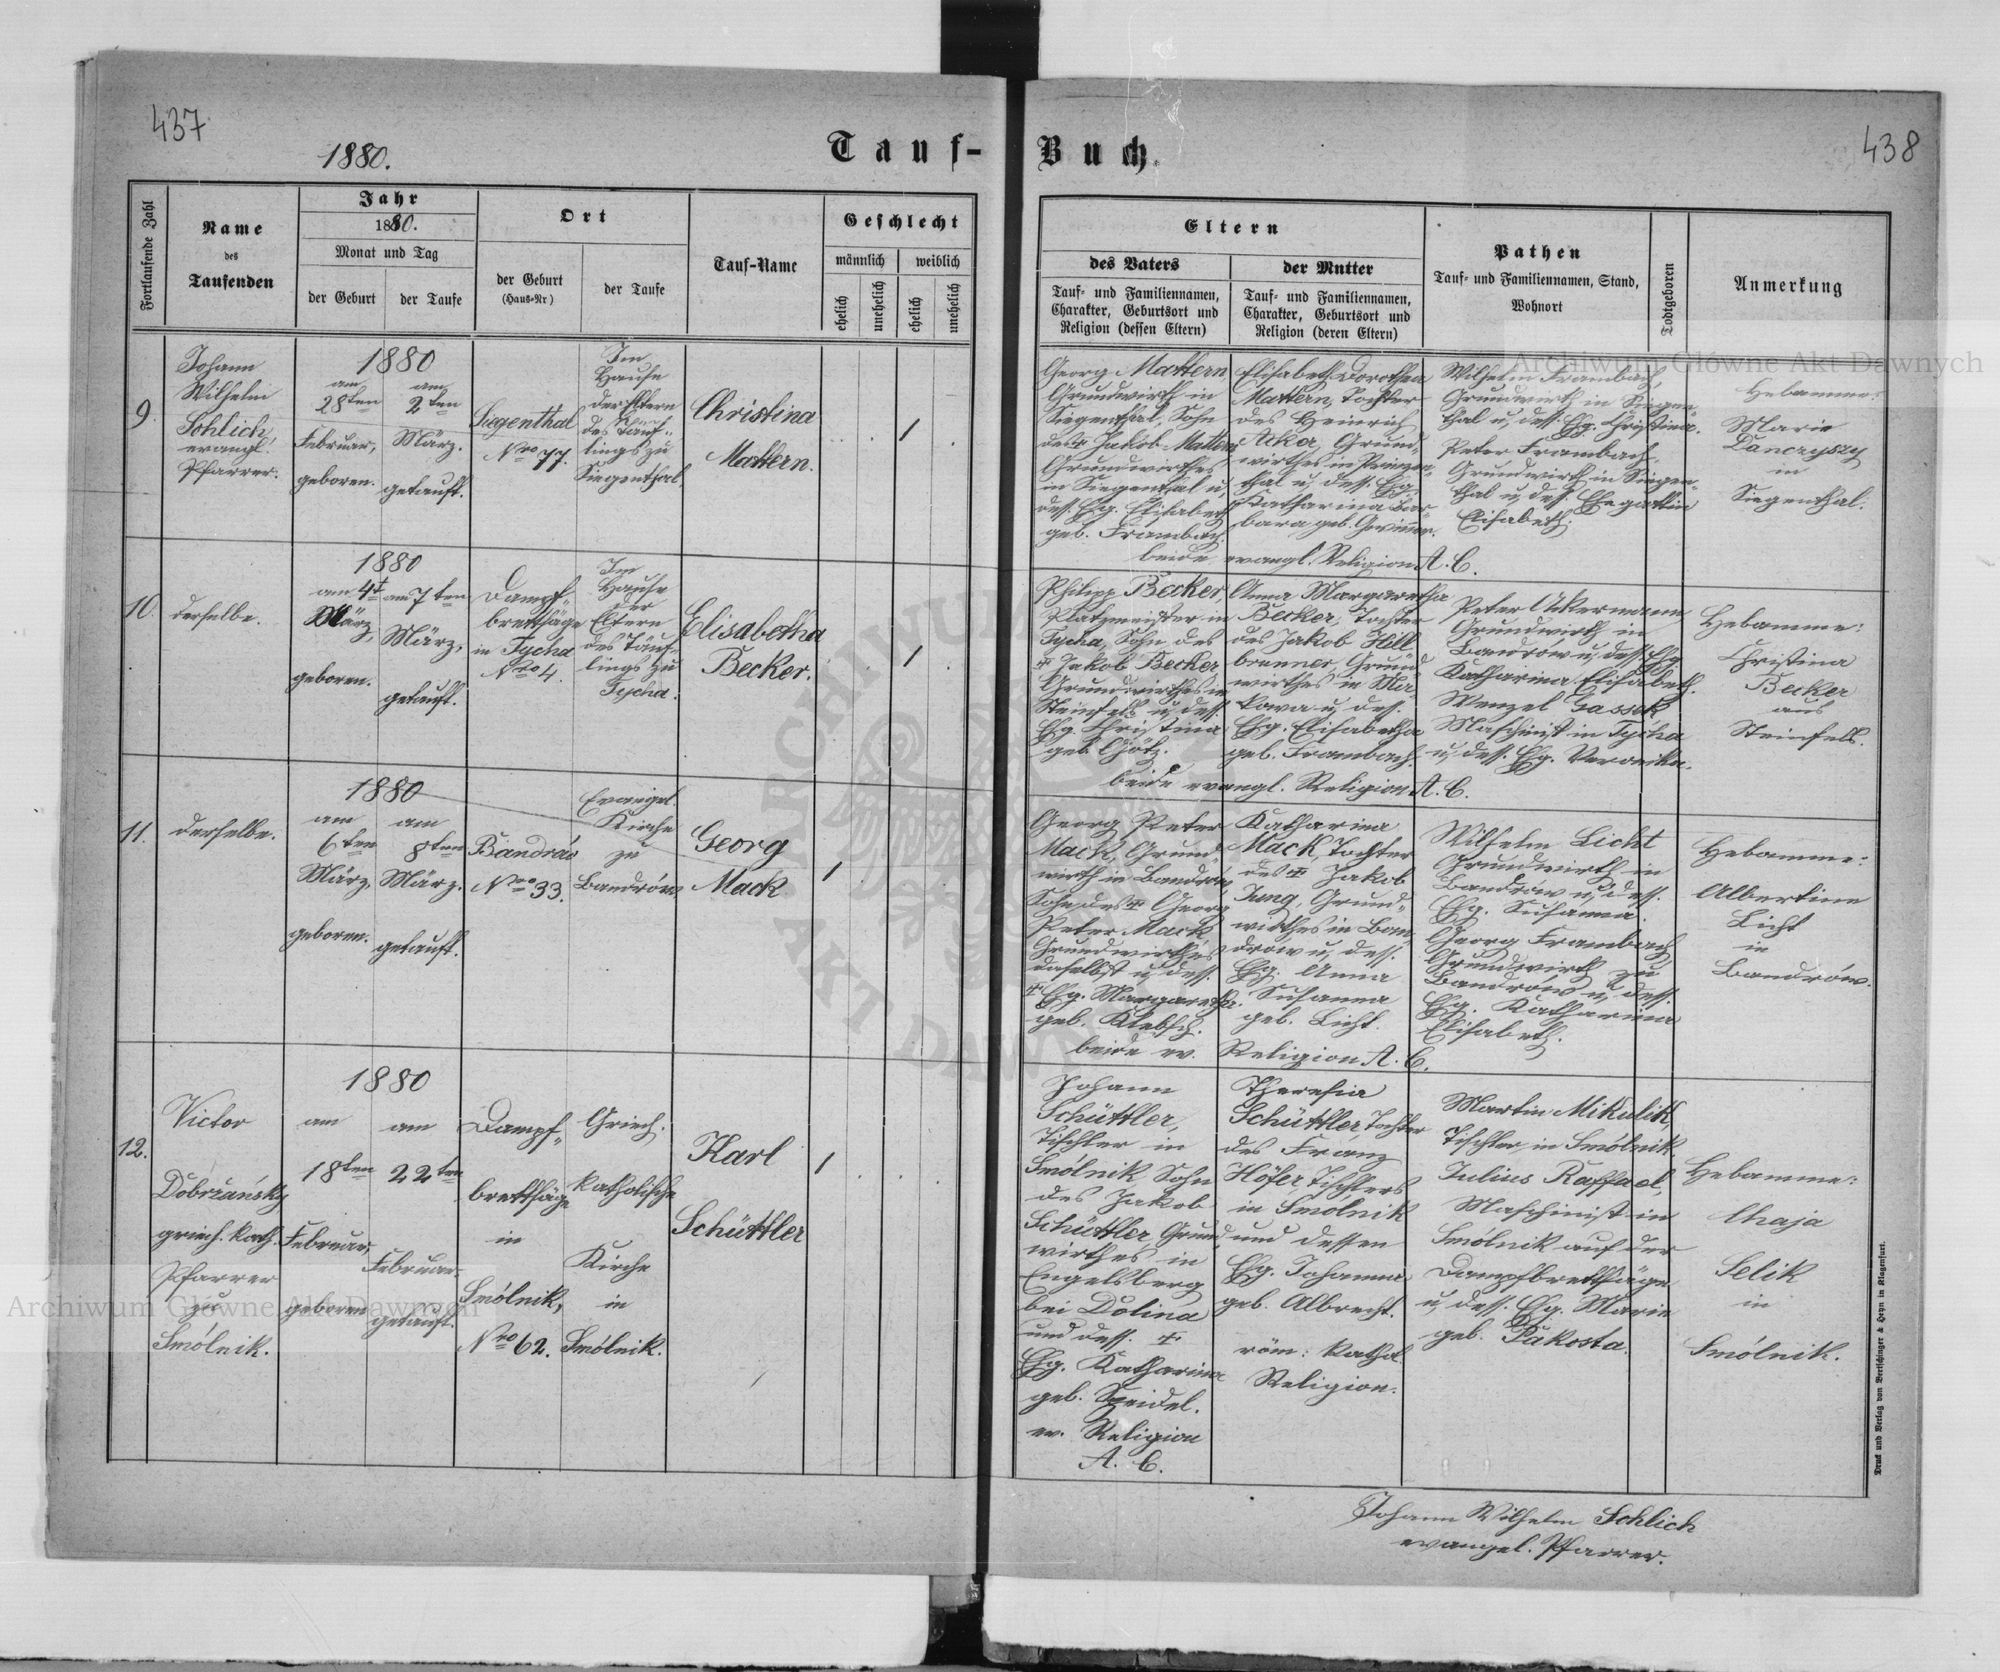 437
438
1880.
Tauf-
Buch.
Fortlaufende Zahl
Name
des
Taufenden
Jahr
1880.
Monat und Tag
der Geburt
der Taufe
Ort
der Geburt
(Haus-Nr)
der Taufe
Tauf-Name
Geschlecht
männlich
weiblich
ehelich
unehelich
ehelich
unehelich
Eltern
des Vaters
Tauf- und Familiennamen,
Charakter, Geburtsort und
Religion (dessen Eltern)
der Mutter
Tauf- und Familiennamen,
Charakter, Geburtsort und
Religion (deren Eltern)
Pathen
Tauf- und Familiennamen, Stand,
Wohnort
Todtgeboren
Anmerkung
9.
Johann
Wilhelm
Schlich,
evangl.
Pfarrer.
1880
am
28ten
Februar,
geboren.
am
2ten
März.
getauft.
Siegenthal
Nro 77.
Im
Hause
der Eltern
des Täuf-
lings zu
Siegenthal.
Christina
Mattern.
1
Georg Mattern
Grundwirth in
Siegenthal, Sohn
des ✝ Jakob Mattern
Grundwirthes
in Siegenthal u,
dess. Ehg. Elisabeth
geb. Frambach.
Elisabeth Dorothea
Mattern, Tochter
des Heinrich
Acker, Grund-
wirthes in Prinzen-
thal u, dess. Ehg.
Katharina Bar-
bara geb.
beide evangl. Religion A. C.
Wilhelm Frambach,
Grundwirth in Siegen-
thal u, dess. Ehg. Christina.
Peter Frambach,
Grundwirth in Siegen-
thal u, dess. Ehegattin
Elisabeth.
Hebamme:
Marie
Danczyszy
in
Siegenthal.
10.
derselbe.
1880
am 4t
März,
geboren.
am 7ten
März,
getauft.
Dampf-
brettsäge
in Tycha
Nro 4.
Im
Hause
der
Eltern
des Täuf-
lings zu
Tycha.
Elisabetha
Becker.
1
Philipp Becker,
Platzmeister in
Tycha, Sohn des
✝ Jakob Becker
Grundwirthes in
Steinfels u, dess.
Ehg. Christina
geb. Götz.
Anna Margaretha
Becker, Tochter
des Jakob Hell
brenner, Grund
wirthes in Ma-
kowa u, des.
Ehg. Elisabetha
geb. Frambach.
beide evangl. Religion A. C.
Peter Ackermann
Grundwirth in
Bandrow u, dess. Ehg.
Katharina Elisabeth.
Wenzel Gassek
Maschinist in Tycha
u, dess. Ehg. Veronika.
Hebamme:
Christina
Becker
aus
Steinfels.
11.
derselbe.
1880
am
6ten
März,
geboren.
am
8ten
März.
getauft.
Bandrów
Nro 33.
Evangel.
Kirche
zu
Bandrów.
Georg
Mack
1
Georg Peter
Mack, Grund-
wirth in Bandrów,
Sohn des ✝ Georg
Peter Mack
Grundwirthes
daselbst u, dess.
✝ Ehg. Margaretha.
geb. Klebsch.
Katharina
Mack, Tochter
des ✝ Jakob
Jung, Grund-
wirthes in Ban
drow u, dess.
Ehg. Anna
Susanna
geb. Licht.
beide ev. Religion A. C.
Wilhelm Licht
Grundwirth in
Bandrów u, dess.
Ehg. Susanna.
Georg Frambach
Grundwirth zu
Bandrów u, dess.
Ehg. Katharina
Elisabeth.
Hebamme:
Albertine
Licht
in
Bandrów.
12.
Victor
Dobržańsky
griech. kath.
Pfarrer
zu
Smólnik.
1880
am
18ten
Februar,
geboren
am
22ten
Februar.
getauft.
Dampf-
brettsäge
in
Smólnik,
Nro 62.
Griech.
katholische
Kirche
in
Smólnik.
Karl
Schüttler
1
Johann
Schüttler,
Tischler in
Smólnik, Sohn
des Jakob
Schüttler, Grund
wirthes in
Engelsberg
bei Dolina
und dess. ✝
Ehg. Katharina
geb. Seidel.
ev. Religion
A. C.
Theresia
Schüttler, Tochter
des Franz
Höfer, Tischlers
in Smolnik
und dessen
Ehg. Johanna
geb. Albrecht.
röm: kathol.
Religion.
Martin Mikulik,
Tischler in Smólnik.
Julius Raffael,
Maschinist in
Smolnik auf der
Dampfbrettsäge
u, dess. Ehg. Marie
geb. Pakosta.
Hebamme:
Chaja
Selik
in
Smólnik.
Johann Wilhelm Schlich
evangel. Pfarrer.
Druck und Verlag von Bertschinger & Heyn in Klagenfurt.
Archiwum Główne Akt Dawnych
Archiwum Główne Akt Dawnych
ARCHIWUM
AKT DAWNYCH